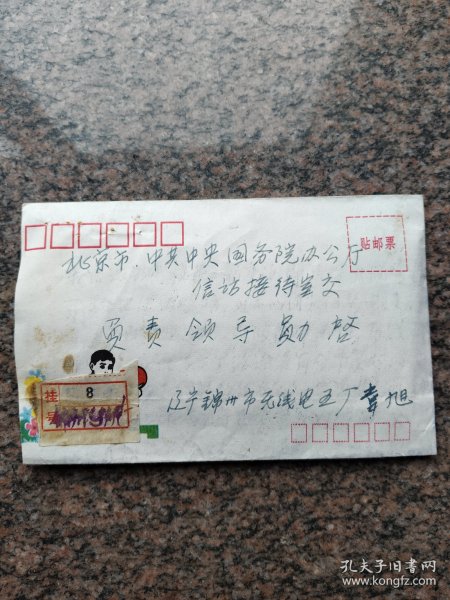 贴邮票
北京市.中共中央国务院办公厅
信访接待室交
负责领导勋启
挂号
8
辽宁锦州市无线电五厂 旭
孔夫子旧书网
www.kongfz.com